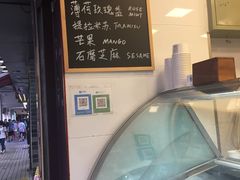 薄荷玫瑰盐 ROSE MINT
提拉米苏 TIRAMISU
芒果 MANGO
石磨芝麻 SESAME